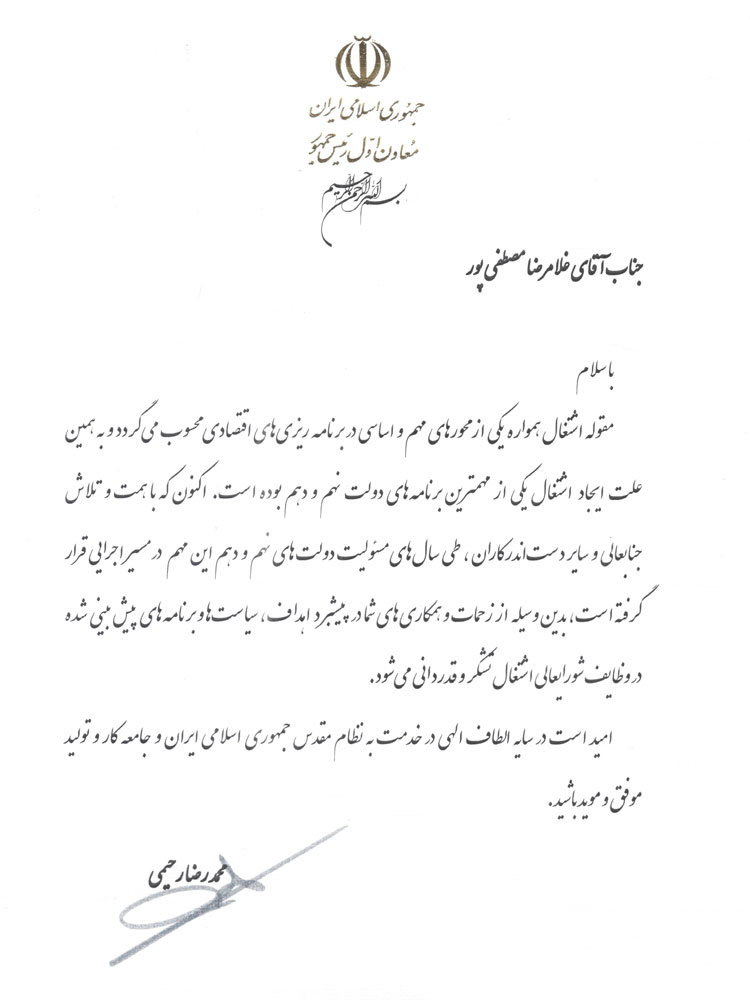 جمهوری اسلامی ایران
معاون اول رئیس جمهور
بسم الله الرحمن الرحیم
جناب آقای غلامرضا مصطفی پور
باسلام
مقوله اشتغال همواره یکی از محورهای مهم و اساسی در برنامه ریزی های اقتصادی محسوب می گردد و به همین
علت ایجاد اشتغال یکی از مهمترین برنامه های دولت نهم و دهم بوده است. اکنون که با همت و تلاش
جنابعالی و سایر دست اندرکاران ، طی سال های مسئولیت دولت های نهم و دهم این مهم در مسیر اجرایی قرار
گرفته است، بدین وسیله از زحمات و همکاری های شما در پیشبرد اهداف، سیاست ها و برنامه های پیش بینی شده
در وظایف شورایعالی اشتغال تشکر و قدردانی می شود.
امید است در سایه الطاف الهی در خدمت به نظام مقدس جمهوری اسلامی ایران و جامعه کار و تولید
موفق و موید باشید.
محمدرضا رحیمی